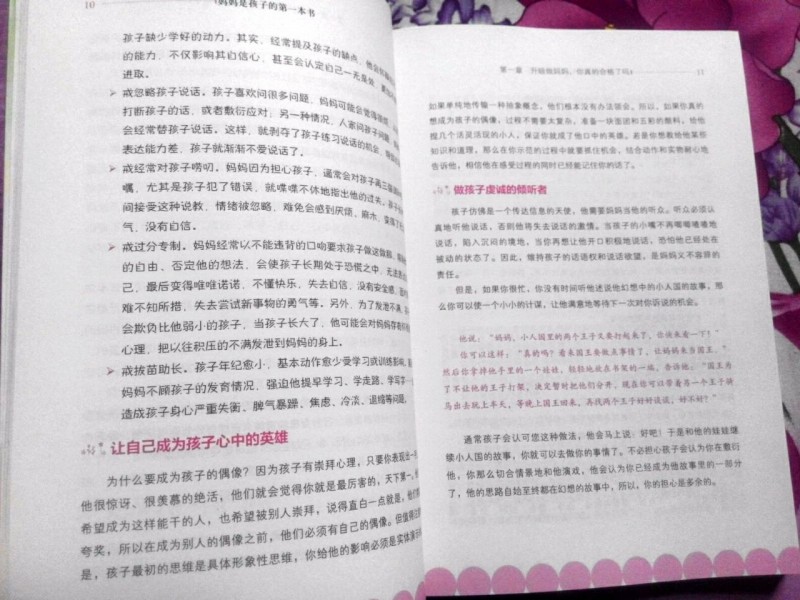 10
妈妈是孩子的第一本书
孩子缺少学好的动力。其实，经常提及孩子的缺点，他会
的能力，不仅影响其自信心，甚至会认定自己一无是处，
戒忽略孩子说话。孩子喜欢问很多问题，妈妈可能会觉得
打断孩子的话，或者敷衍应对；另一种情况，人家问孩子问题，
会经常替孩子说话。这样，就剥夺了孩子练习说话的机会，
表达能力差，孩子就渐渐不爱说话了。
戒经常对孩子唠叨。妈妈因为担心孩子，通常会对孩子再三
嘱，尤其是孩子犯了错误，就喋喋不休地指出他的过失。孩子
间接受这种说教，情绪被忽略，难免会感到厌烦、麻木，
气，没有自信。
戒过分专制。妈妈经常以不能违背的口吻要求孩子做这做那，
的自由、否定他的想法，会使孩子长期处于恐慌之中，无法
己，最后变得唯唯诺诺，不懂快乐，失去自信，没有安全感，
难不知所措，失去尝试新事物的勇气等。另外，为了发泄不满，
会欺负比他弱小的孩子，当孩子长大了，他可能会对妈妈存有
心理，把以往积压的不满发泄到妈妈的身上。
戒拔苗助长。孩子年纪愈小，基本动作愈少受学习或训练影响。
妈妈不顾孩子的发育情况，强迫他提早学习、学走路、学写字
造成孩子身心严重失衡、脾气暴躁、焦虑、冷淡、退缩等问题。
让自己成为孩子心中的英雄
为什么要成为孩子的偶像？因为孩子有崇拜心理，只要你表现出一
他很惊讶、很羡慕的绝活，他们就会觉得你就是最厉害的，天下第一，
希望成为这样能干的人，也希望被别人崇拜，说得直白一点就是，他们
夸奖，所以在成为别人的偶像之前，他们必须有自己的偶像。但值得
是，孩子最初的思维是具体形象性思维，你给他的影响必须是实体
第一章 升级做妈妈，你真的合格了吗
11
如果单纯地传输一种抽象概念，他们根本没有办法领会。所以，如果你真的
想成为孩子的偶像，过程不需要太复杂，准备一块面团和五彩的颜料，给他
捏几个活灵活现的小人，保证你就成了他口中的英雄。若是你想教给他某些
知识和道理，那么在你示范的过程中就要抓住机会，结合动作和实物耐心地
告诉他，相信他在感受过程的同时已经能记住你的话了。
做孩子虔诚的倾听者
孩子仿佛是一个传达信息的天使，他需要妈妈当他的听众。听众必须认
真地听他说话，否则他将失去说话的激情。当孩子的小嘴不再唧唧喳喳地
说话，陷入沉闷的境地，当你再想让他开口积极地说话，恐怕他已经处在
被动的状态了。因此，维持孩子的话语权和说话欲望，是妈妈义不容辞的
责任。
但是，如果你很忙，你没有时间听他述说他幻想中的小人国的故事，那
么你可以使一个小小的计谋，让他满意地等待下一次对你诉说的机会。
他说：“妈妈，小人国里的两个王子又要打起来了，你快来看一下！”
你可以这样：“真的吗？看来国王要做点事情了，让妈妈来当国王。”
然后你拿掉他手里的一个娃娃，轻轻地放在书架的一端，告诉他：“国王为
了不让他的王子打架，决定暂时把他们分开，现在你可以带着另一个王子骑
马出去玩上半天，等晚上国王回来，再找两个王子好好谈谈，好不好？”
通常孩子会认可您这种做法，他会马上说：好吧！于是和他的娃娃继
续小人国的故事，你就可以去做你的事情了。不必担心孩子会认为你在敷衍
他，你那么切合情景地和他演戏，他会认为你已经成为他故事里的一部分
了，他的思路自始至终都在幻想的故事中，所以，你的担心是多余的。